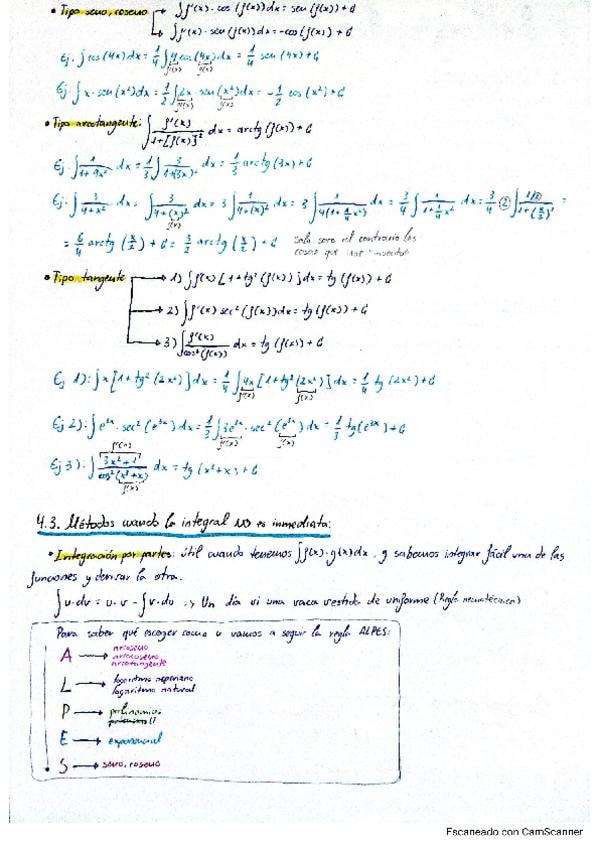 • Tipo seno, coseno → ∫f'(x)·cos(f(x))dx = sen(f(x))+C
→ ∫f'(x)·sen(f(x))dx = -cos(f(x))+C
Ej: ∫cos(4x)dx = 1/4 ∫4 cos(4x)dx = 1/4 sen(4x)+C
f'(x) f(x)
Ej: ∫x·sen(x²)dx = 1/2 ∫2x·sen(x²)dx = -1/2 cos(x²)+C
f'(x) f(x)
• Tipo arcotangente: ∫ f'(x)/(1+[f(x)]²) dx = arctg(f(x))+C
Ej: ∫ 1/(1+9x²) dx = 1/3 ∫ 3/(1+(3x)²) dx = 1/3 arctg(3x)+C
Ej: ∫ 3/(4+x²) dx = ∫ 3/(4+(x)²) dx = 3 ∫ 1/(4+(x)²) dx = 3 ∫ 1/(4(1+1/4 x²)) dx = 3/4 ∫ 1/(1+1/4 x²) dx = 3/4 · 2 ∫ 1/2/(1+(x/2)²) =
f(x)
= 6/4 arctg(x/2)+C = 3/2 arctg(x/2)+C solo seno al contrario las
cosas que
• Tipo tangente → 1) ∫f'(x)[1+tg²(f(x))]dx = tg(f(x))+C
→ 2) ∫f'(x) sec²(f(x))dx = tg(f(x))+C
→ 3) ∫ f'(x)/cos²(f(x)) dx = tg(f(x))+C
Ej 1): ∫x[1+tg²(2x²)]dx = 1/4 ∫4x[1+tg²(2x²)]dx = 1/4 tg(2x²)+C
f'(x) f(x)
Ej 2): ∫e³ˣ·sec²(e³ˣ)dx = 1/3 ∫3e³ˣ·sec²(e³ˣ)dx = 1/3 tg(e³ˣ)+C
f'(x) f(x)
f'(x)
Ej 3): ∫ 3x²+1/cos²(x³+x) dx = tg(x³+x)+C
f(x)
4.3. Métodos cuando la integral NO es inmediata:
• Integración por partes: útil cuando tenemos ∫f(x)·g(x)dx, y sabemos integrar fácil una de las
funciones y derivar la otra.
∫u·dv = u·v - ∫v·du → Un día vi una vaca vestida de uniforme (Regla nemotécnica)
Para saber qué escoger como u vamos a seguir la regla ALPES:
A → arcoseno
arcocoseno
arcotangente
L → logaritmo neperiano
logaritmo natural
P → polinomios
E → exponencial
S → seno, coseno
Escaneado con CamScanner